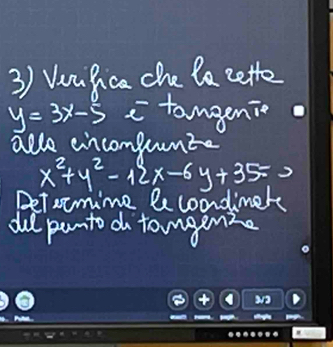 3) Verifica che la retta
y = 3x - 5 è tangente
alla circonferenza
x² + y² - 12x - 6y + 35 = 0
Determina le coordinate
del punto di tangenza
3/3